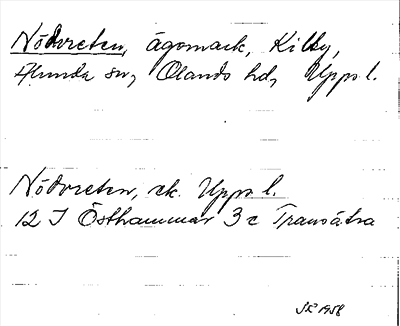 Nödvreten, ägomark, Kilby,
Alunda sn, Olands hd, Upps l.
Nödvreten, ek. Upps l.
12 I Östhammar 3 c Tranvätra
SE 1958